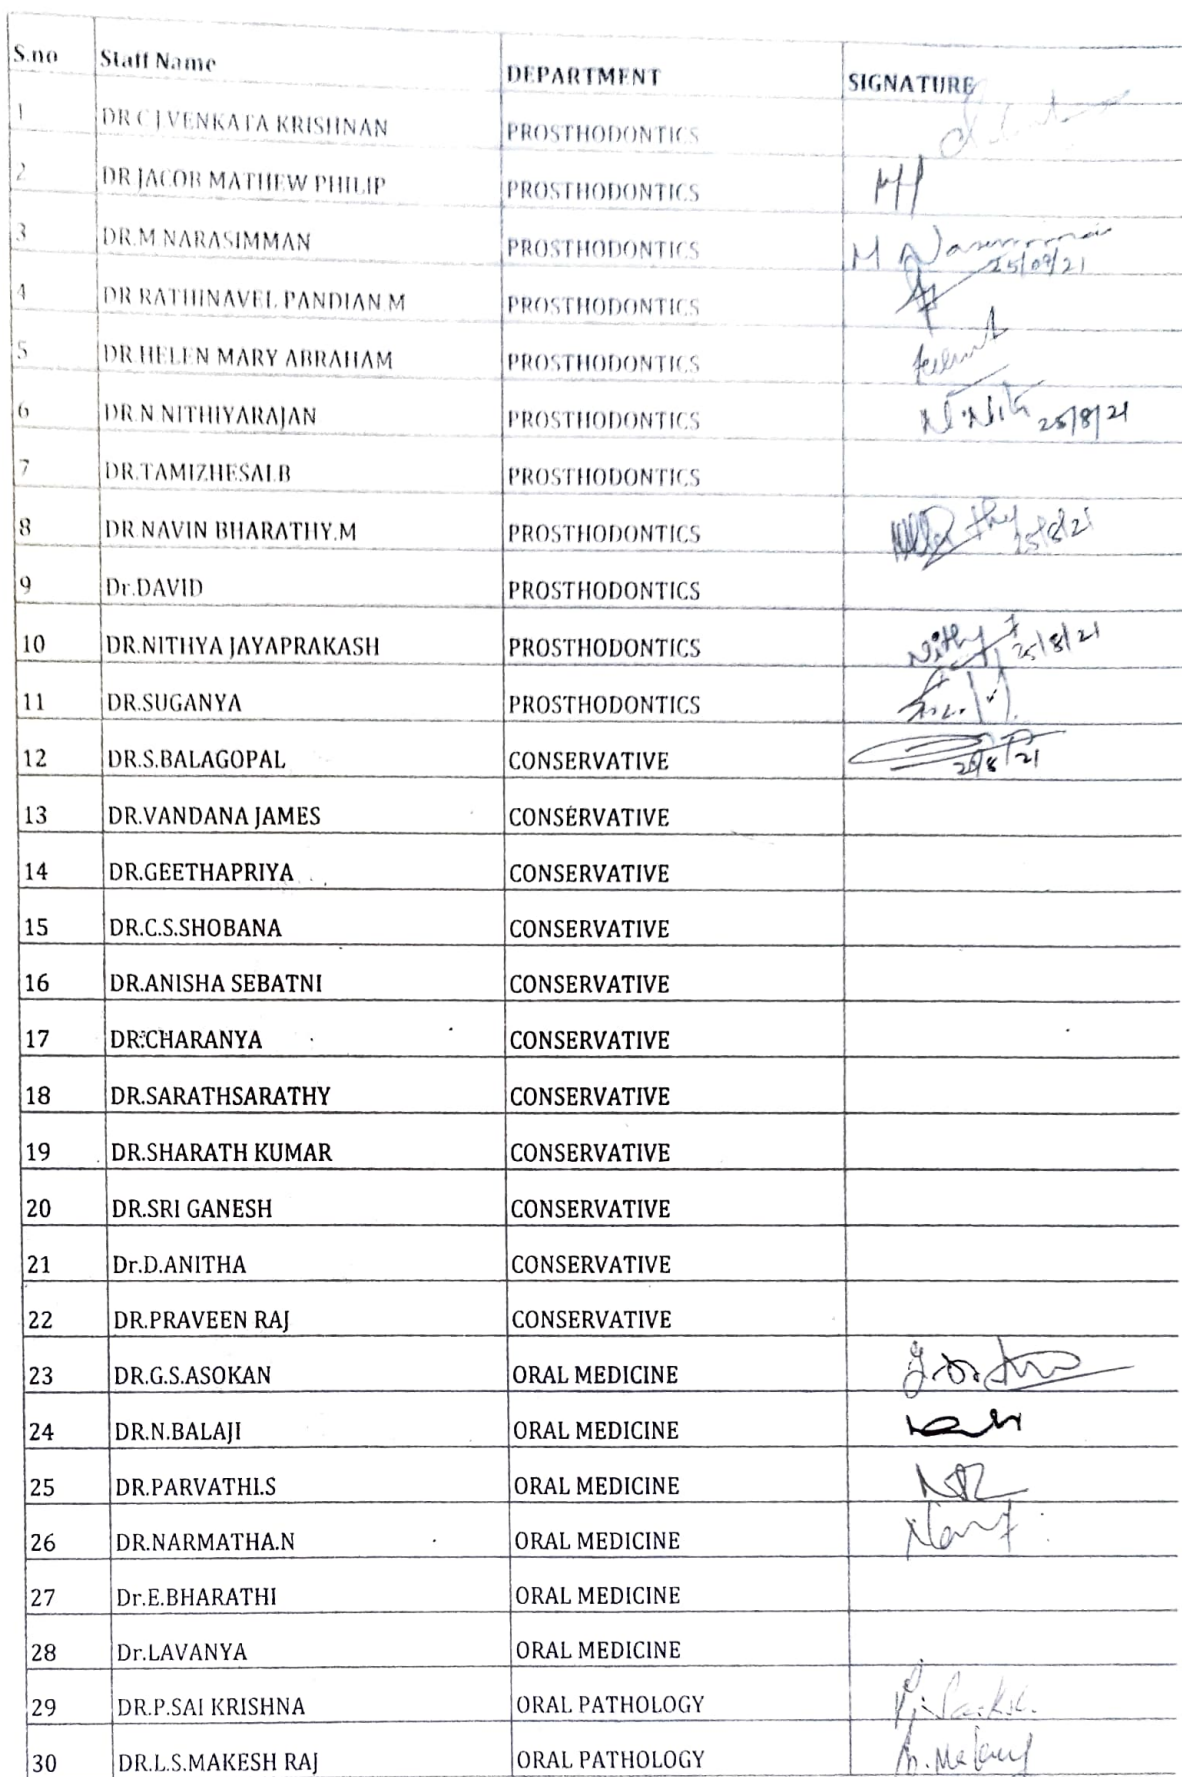 S.no Staff Name DEPARTMENT SIGNATURE
1 DR C J.VENKATA KRISHNAN PROSTHODONTICS
2 DR JACOB MATHEW PHILIP PROSTHODONTICS
3 DR.M NARASIMMAN PROSTHODONTICS M
25/08/21
4 DR RATHINAVEL PANDIAN M PROSTHODONTICS
5 DR HELEN MARY ABRAHAM PROSTHODONTICS
6 DR.N NITHIYARAJAN PROSTHODONTICS 25/8/21
7 DR.TAMIZHESAI.B PROSTHODONTICS
8 DR NAVIN BHARATHY.M PROSTHODONTICS 25/8/21
9 Dr.DAVID PROSTHODONTICS
10 DR.NITHYA JAYAPRAKASH PROSTHODONTICS 25/8/21
11 DR.SUGANYA PROSTHODONTICS
12 DR.S.BALAGOPAL CONSERVATIVE
13 DR.VANDANA JAMES CONSERVATIVE
14 DR.GEETHAPRIYA CONSERVATIVE
15 DR.C.S.SHOBANA CONSERVATIVE
16 DR.ANISHA SEBATNI CONSERVATIVE
17 DR.CHARANYA CONSERVATIVE
18 DR.SARATHSARATHY CONSERVATIVE
19 DR.SHARATH KUMAR CONSERVATIVE
20 DR.SRI GANESH CONSERVATIVE
21 Dr.D.ANITHA CONSERVATIVE
22 DR.PRAVEEN RAJ CONSERVATIVE
23 DR.G.S.ASOKAN ORAL MEDICINE
24 DR.N.BALAJI ORAL MEDICINE
25 DR.PARVATHI.S ORAL MEDICINE
26 DR.NARMATHA.N ORAL MEDICINE
27 Dr.E.BHARATHI ORAL MEDICINE
28 Dr.LAVANYA ORAL MEDICINE
29 DR.P.SAI KRISHNA ORAL PATHOLOGY
30 DR.L.S.MAKESH RAJ ORAL PATHOLOGY